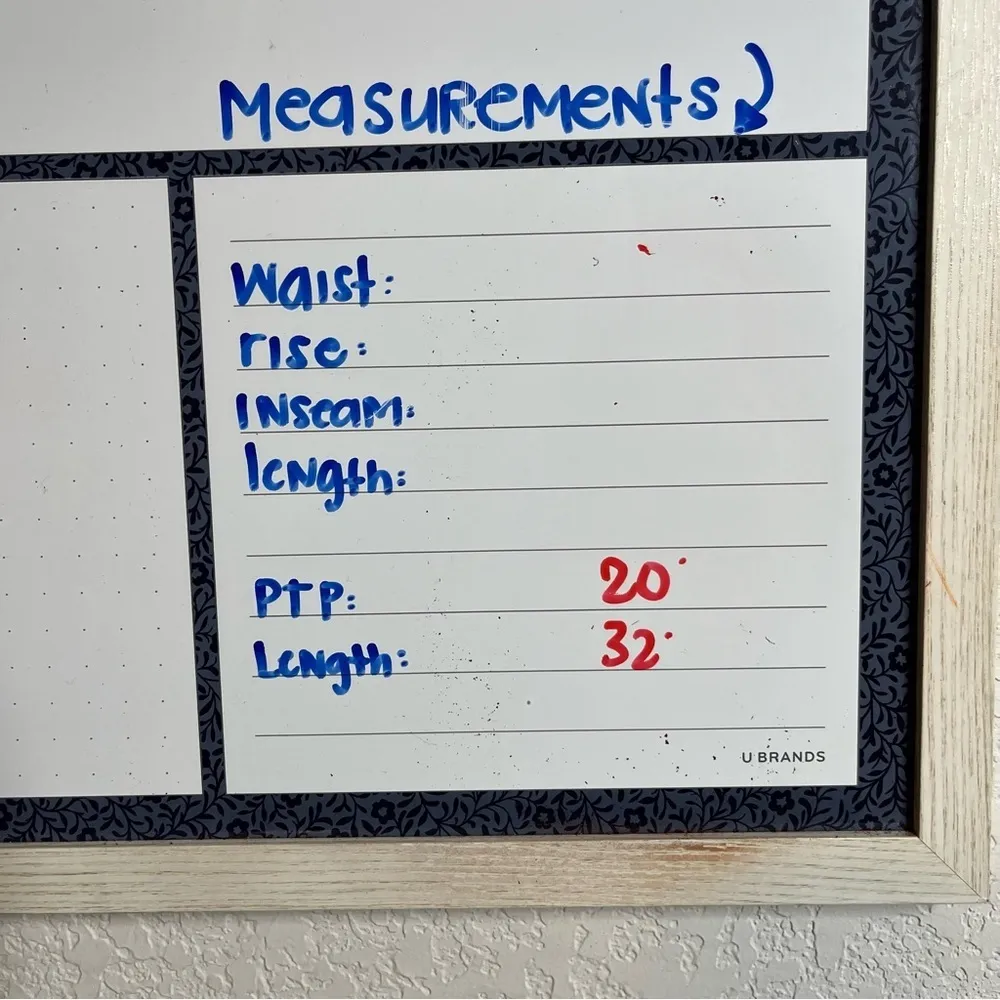 Measurements
Waist:
rise:
Inseam:
length:
PTP: 20"
Length: 32"
U BRANDS